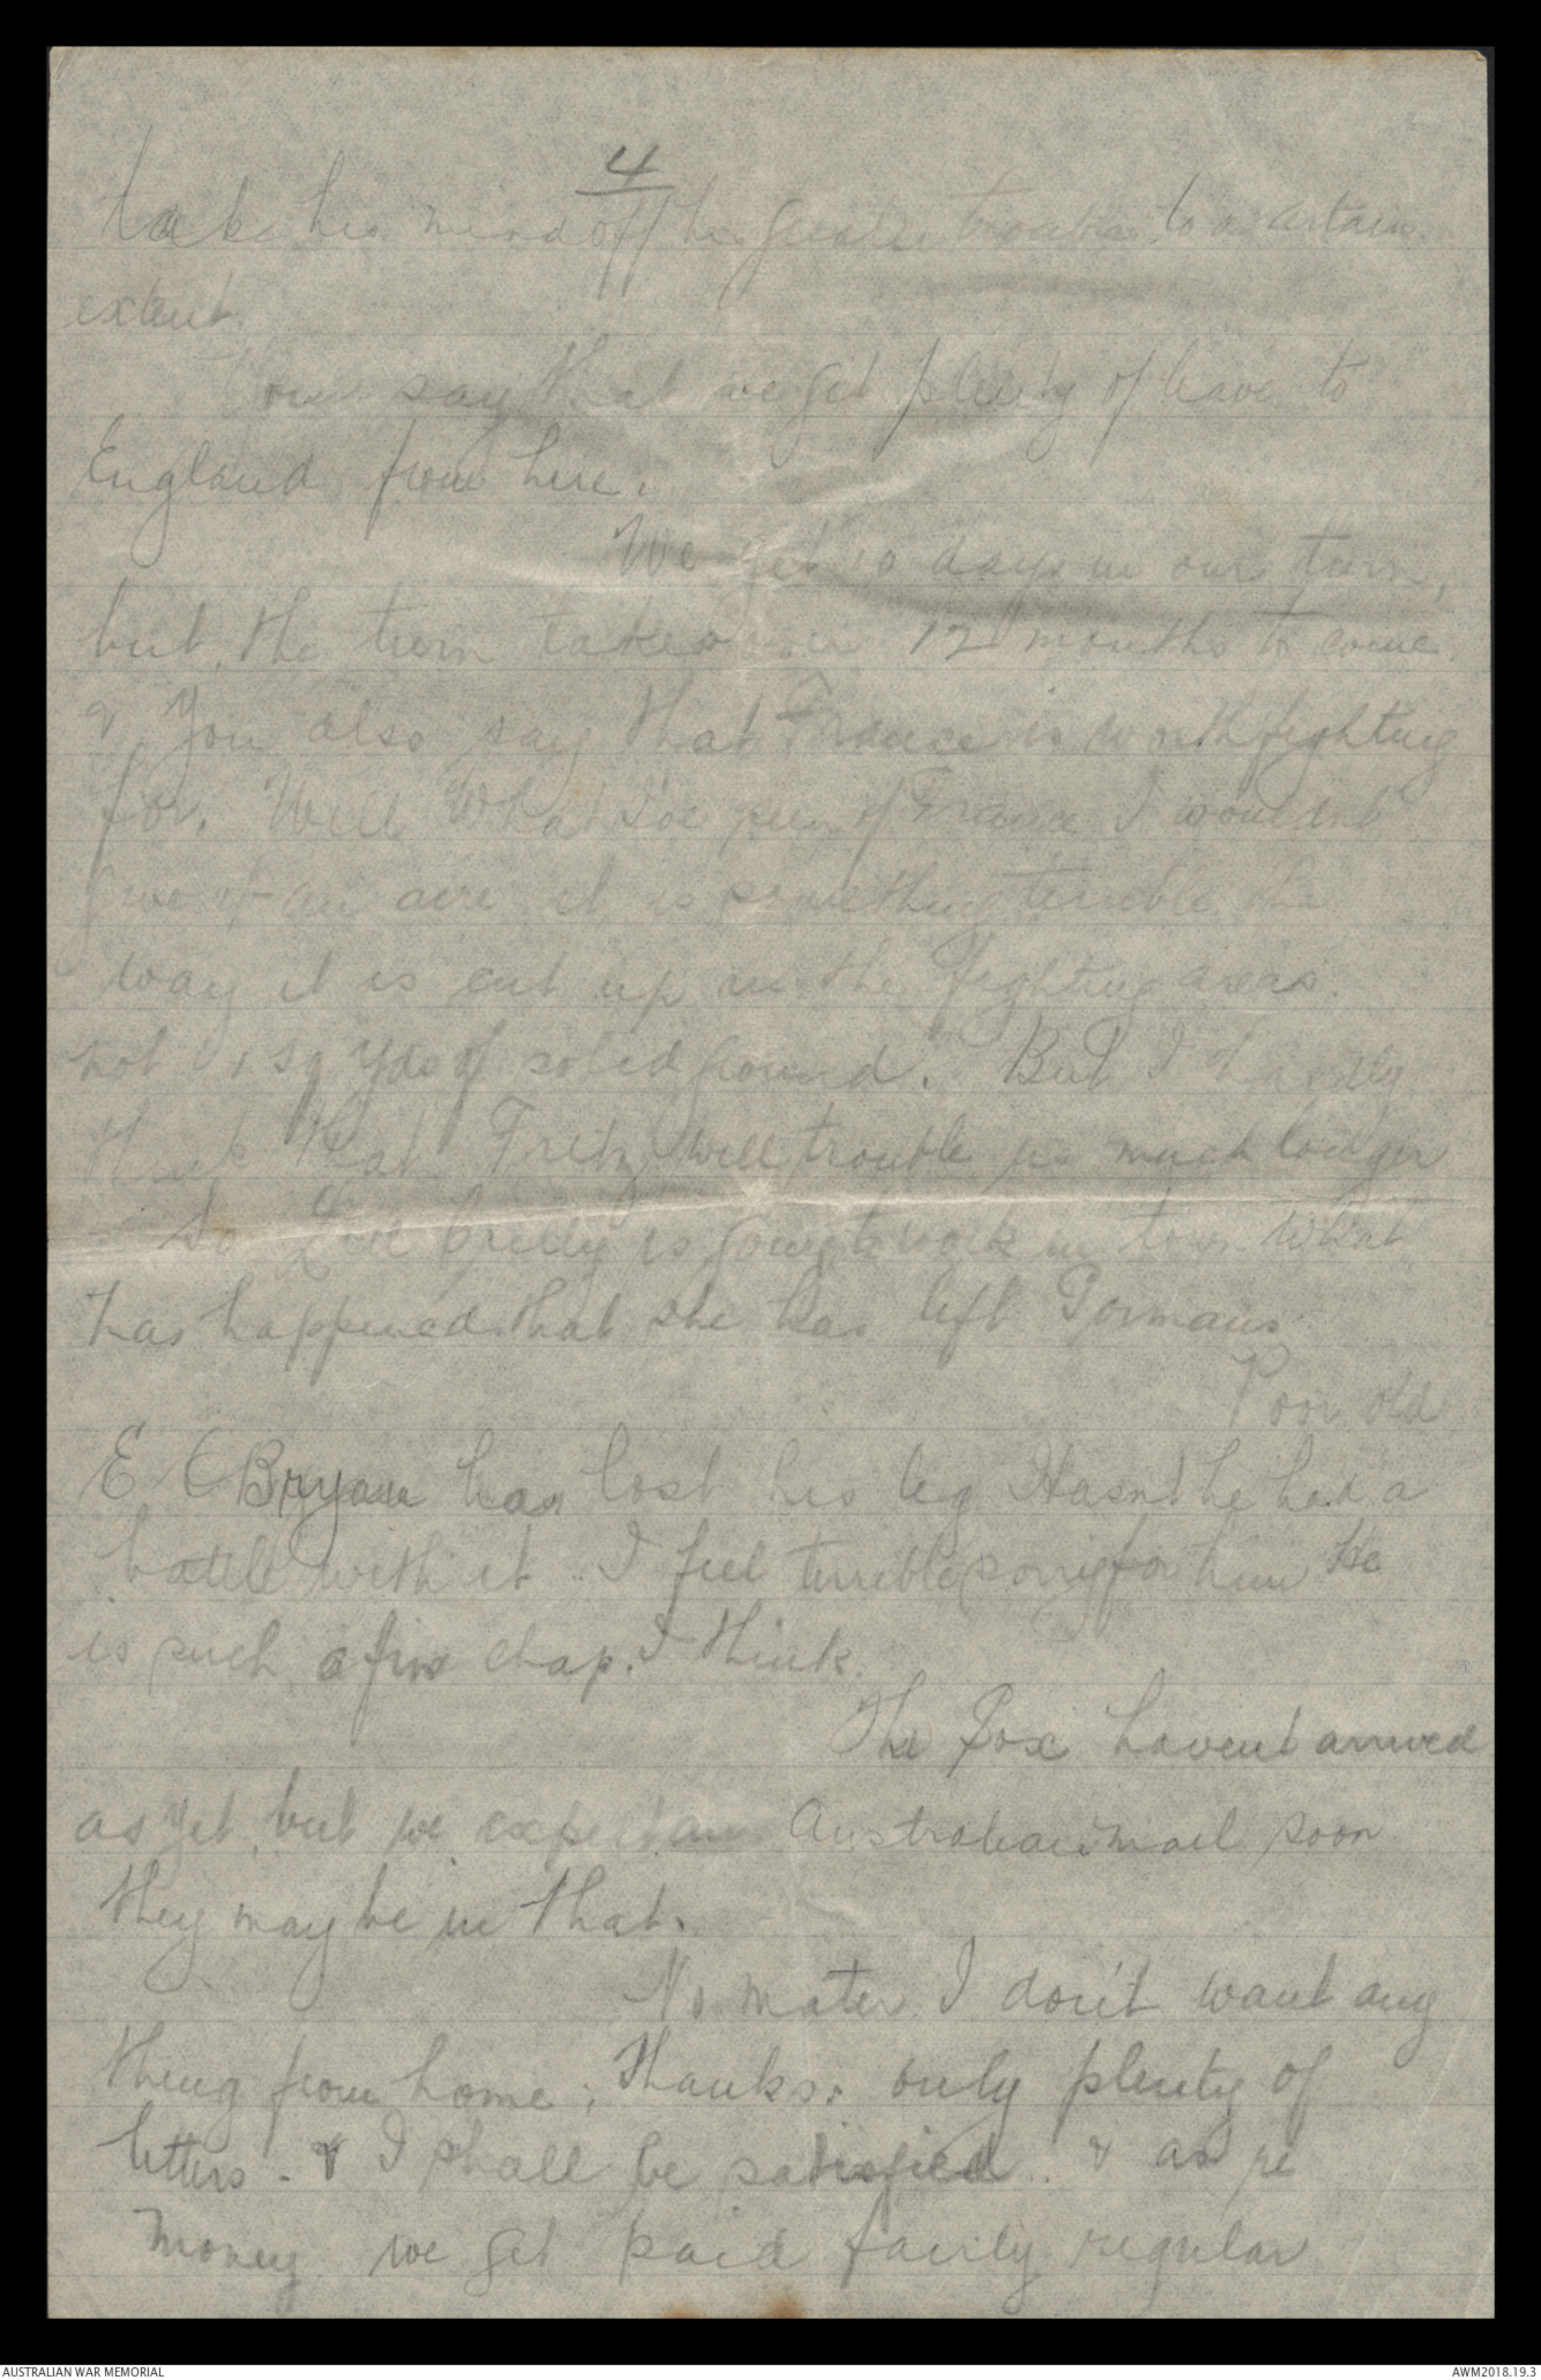 4
take his mind off the greater trouble to a certain
extent.
You say that we get plenty of leave to
England from here.
We get 10 days in our turn,
but the turn takes over 12 months to come.
& You also say that France is worth fighting
for. Well What I've seen of France I wouldnt
give an acre it is something terrible the
way it is cut up in the fighting areas.
not sq yds of solid ground. But I hardly
think that Fritz will trouble us much longer
So is going to work in town What
has happened that she has left Gormans
Poor old
E C Bryan has lost his leg Hasnt he had a
battle with it. I feel terrible sorry for him He
is such a fine chap. I think.
The Sox havent arrived
as yet, but we expect an Australian mail soon
they may be in that.
No mater I don't want any
thing from home, thanks: only plenty of
letters. & I shall be satisfied. & as re
money, we get paid fairly regular
AUSTRALIAN WAR MEMORIAL
AWM2018.19.3